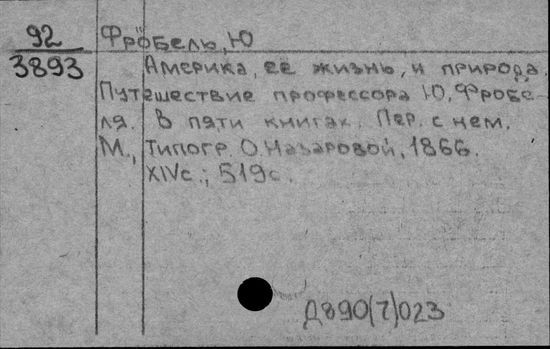 92 Фрöбель, Ю
3893 Америка, её жизнь, и природа.
Путешествие профессора Ю. Фрöбе-
ля. В пяти книгах. Пер. с нем.
М., Типогр. О. Назаровой, 1866.
XIVс.; 519с.
Д890(7)023